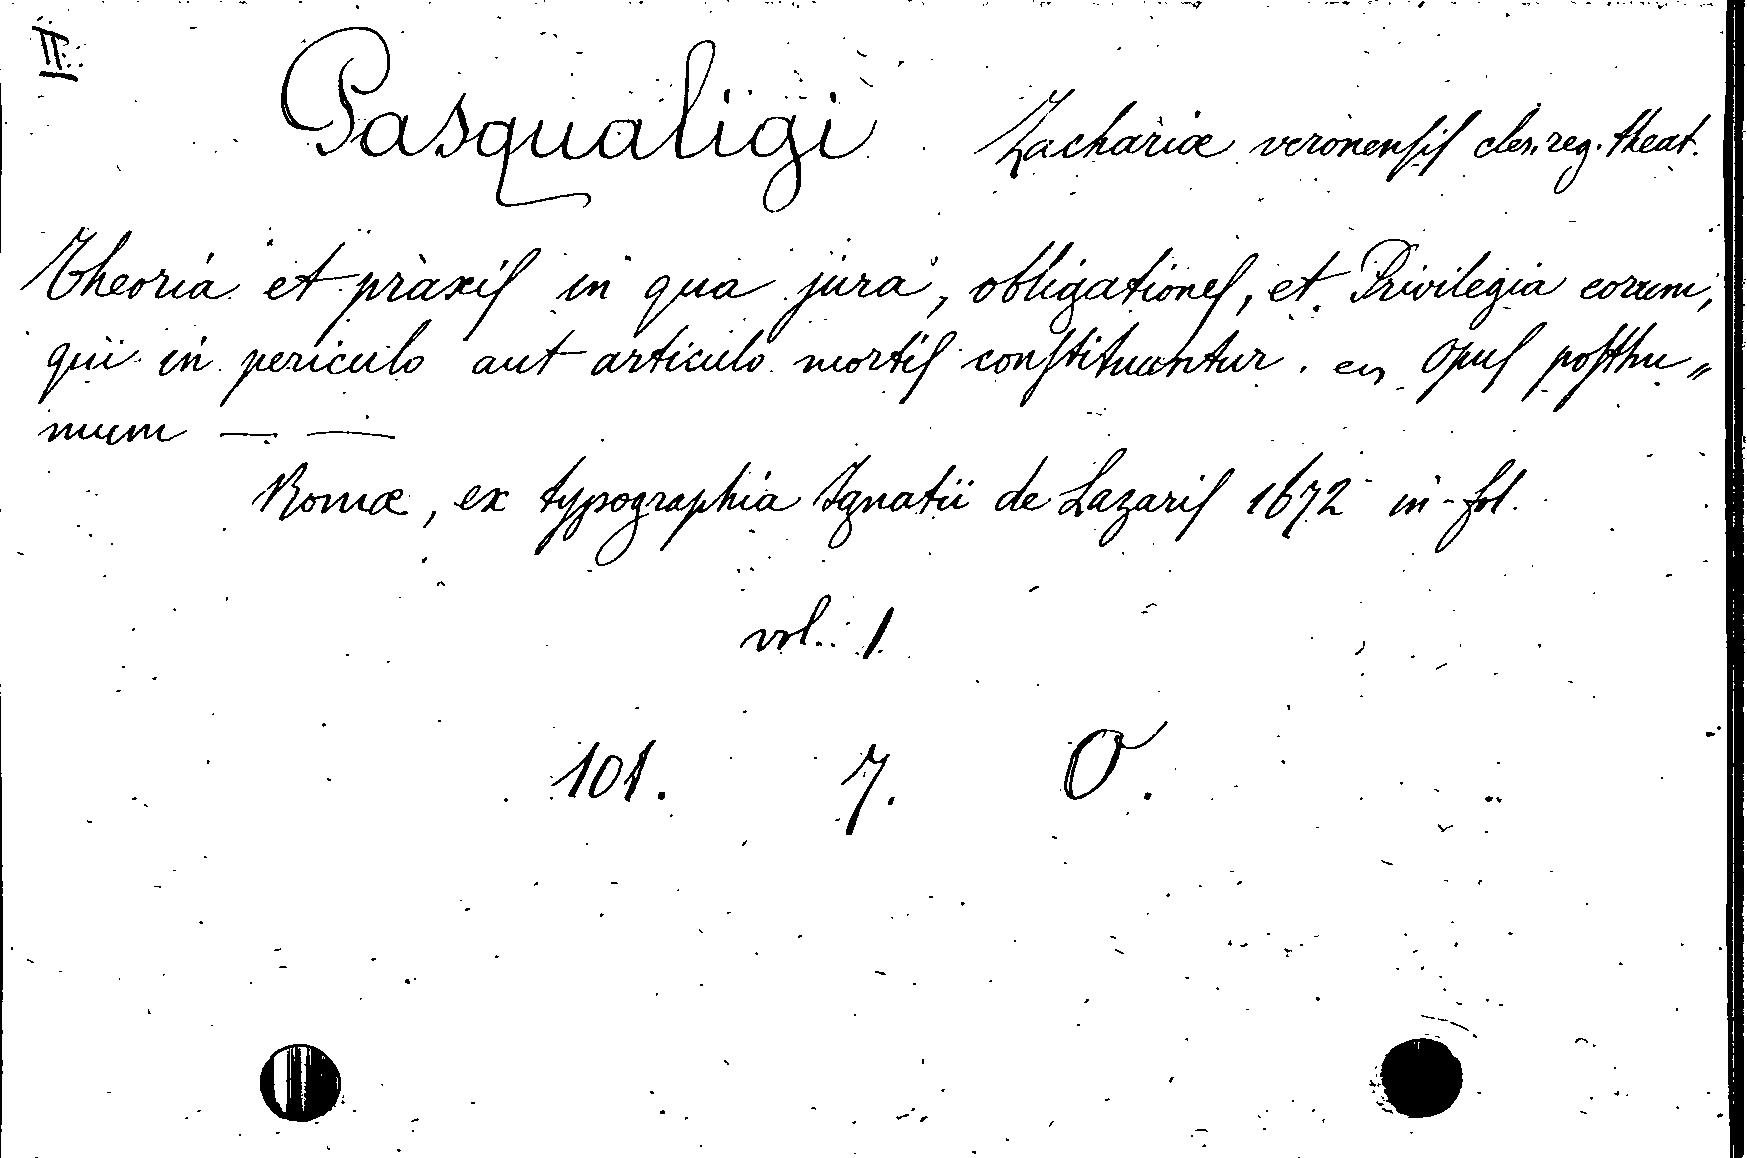 II.
Pasqualigi Zachariæ veronensis cler. reg. theat.
Theoria et praxis in qua jura, obligationes, et Privilegia eorum,
qui in periculo aut articulo mortis constituuntur. en Opus posthu„
mum — —
Romæ, ex typographia Ignatii de Lazaris 1672 in-fol.
vol. 1
101. 7. O.